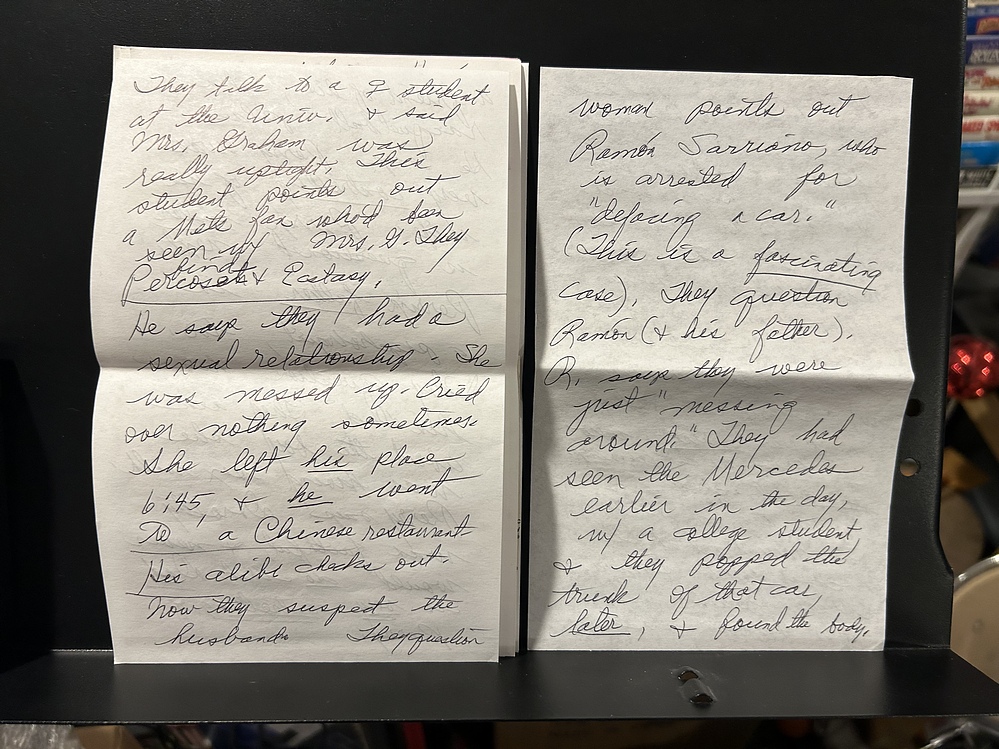 They talk to a ♀ student
at the Univ. & said
Mrs. Graham was
really uptight. This
student points out
a Mets fan who'd been
seen w/ Mrs. G. They
find
Percoset & Ecstasy.
He says they had a
sexual relationship. She
was messed up. Cried
over nothing sometimes.
She left his place
6:45, & he went
to a Chinese restaurant.
His alibi checks out.
Now they suspect the
husband. They question
woman points out
Ramón Sarriano, who
is arrested for
"defacing a car."
(This is a fascinating
case). They question
Ramón (& his father).
R. says they were
just "messing
around." They had
seen the Mercedes
earlier in the day,
w/ a college student,
& they popped the
trunk of that car,
later, & found the body.